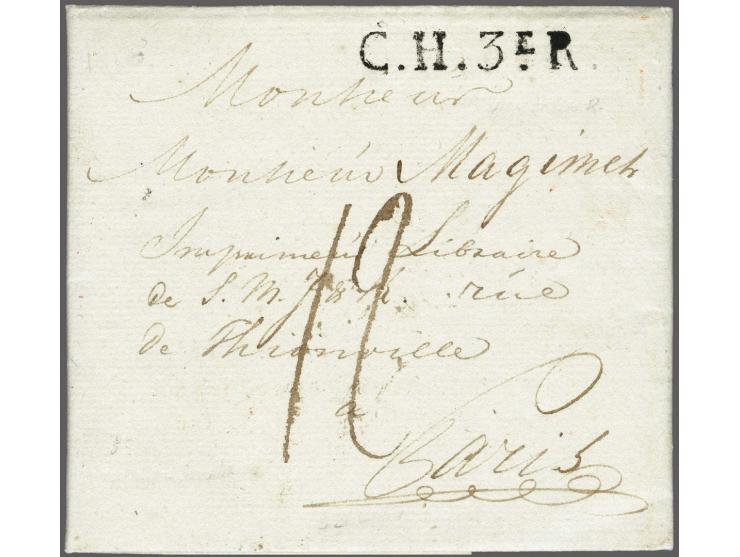 C.H.3ER.
Monsieur
Monsieur Magimel
Imprimeur Libraire
de S. M. J & R. rue
de Thionville
à
Paris